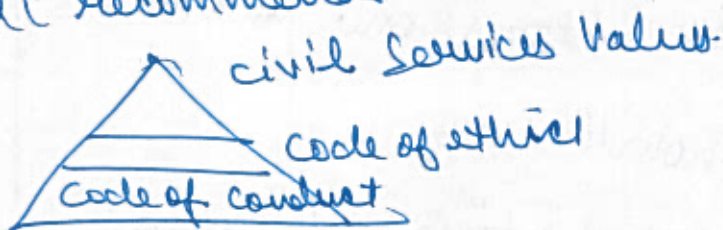 recommend
civil Services Values.
code of ethics
code of conduct